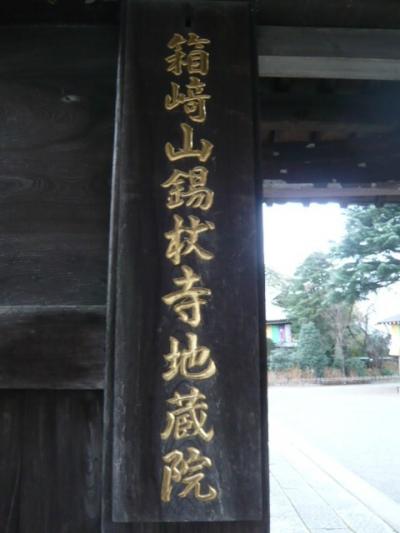 箱﨑山錫杖寺地蔵院